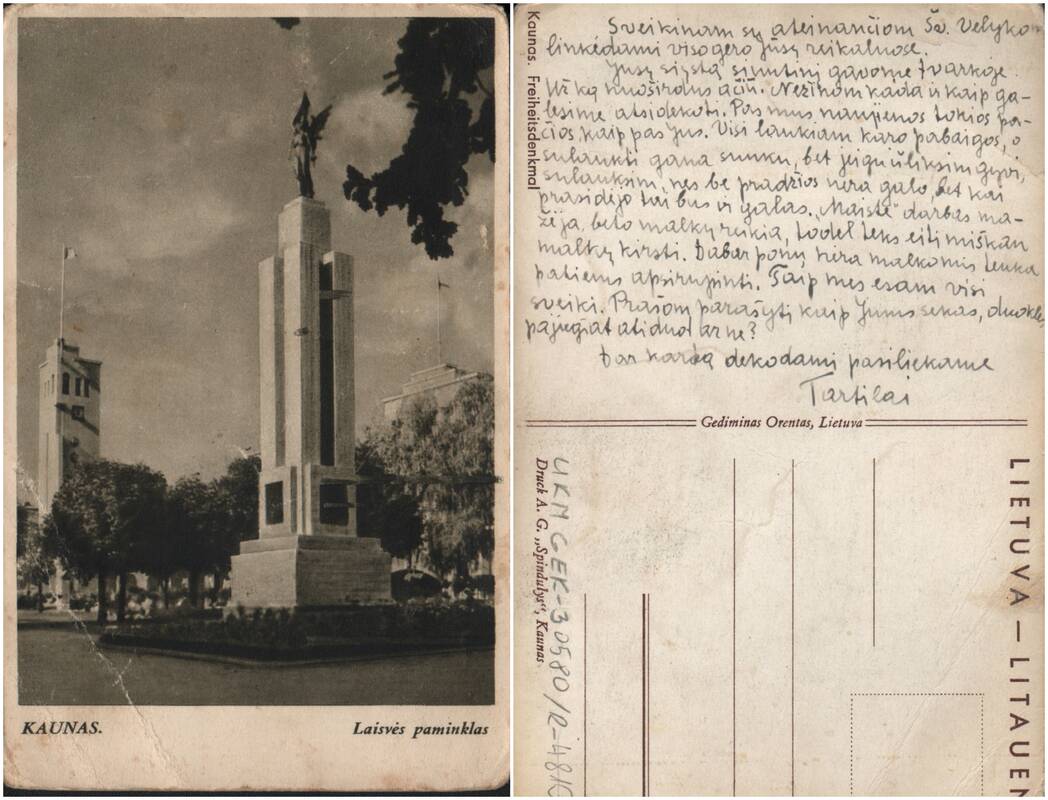 KAUNAS.
Laisvės paminklas
Kaunas. Freiheitsdenkmal
Sveikinam su ateinančiom Šv. Velykom
linkėdami viso gero jūsų reikaluose.
Jūsų siųstą siuntinį gavome tvarkoje.
Už ką nuoširdus ačiū. Nežinom kada ir kaip ga-
lėsime atsidėkoti. Pas mus naujienos tokios pa-
čios kaip pas Jus. Visi laukiam karo pabaigos, o
sulaukti gana sunku, bet jeigu išliksim gyvi,
sulauksim, nes be pradžios nėra galo, bet kai
prasidėjo tai bus ir galas. „Maiste" darbas ma-
žėja, be to malkų reikia, todėl teks eiti miškan
malkų kirsti. Dabar ponų nėra malkomis tenka
patiems apsirūpinti. Taip mes esam visi
sveiki. Prašom parašyti kaip Jums sekas,
pajėgiat atiduot ar ne?
Dar kartą dėkodami pasiliekame
Tartilai
Gediminas Orentas, Lietuva
Druck A. G. „Spindulys“, Kaunas
UKM GEK-30580/R-4810
LIETUVA — LITAUEN